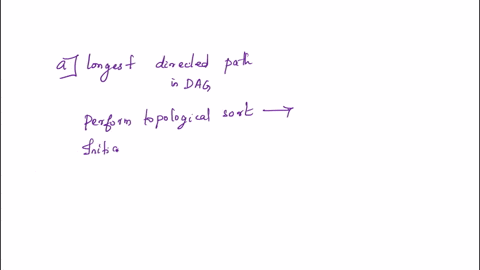 a] longest directed path
in DAG
Perform topological sort ⟶
Initia